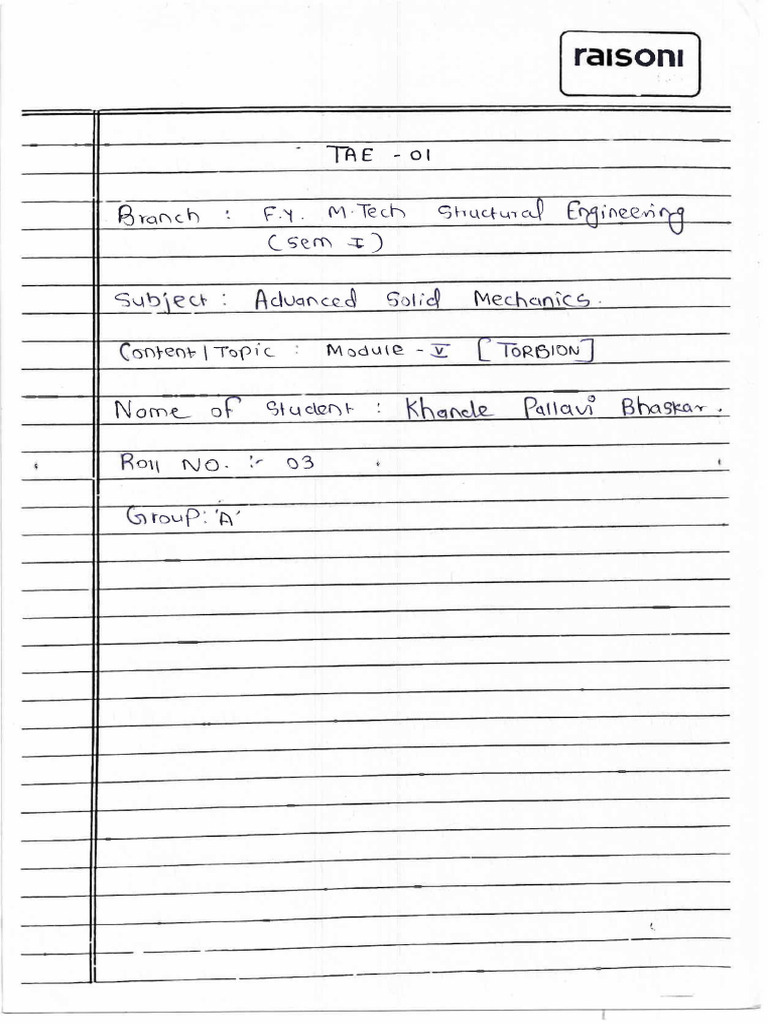 raisoni
TAE - 01
Branch : F.Y. M.Tech Structural Engineering
(Sem I)
Subject : Advanced Solid Mechanics.
Content/Topic : Module - V [TORSION]
Name of Student : Khande Pallavi Bhaskar.
Roll NO. :- 03
Group: 'A'